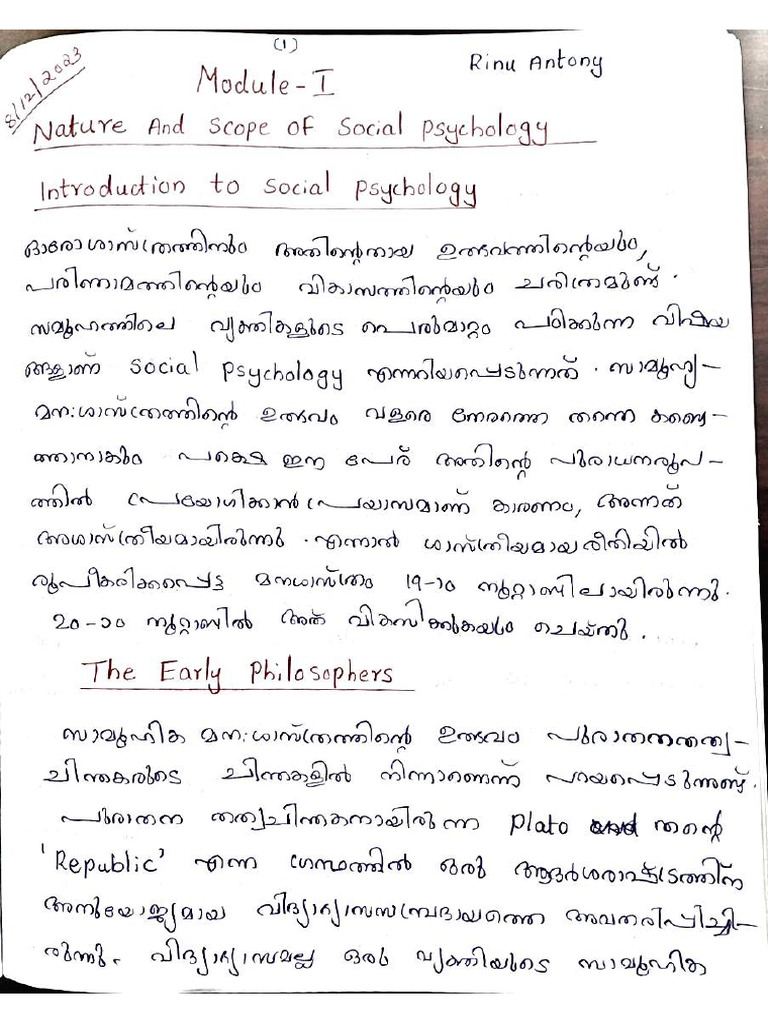 (1)
Rinu Antony
8/12/2023
Module-I
Nature And Scope of Social Psychology
Introduction to Social Psychology
ഓരോശാസ്ത്രത്തിനും അതിന്റെതായ ഉത്ഭവത്തിന്റെയും,
പരിണാമത്തിന്റെയും വികാസത്തിന്റെയും ചരിത്രമുണ്ട്.
സമൂഹത്തിലെ വ്യക്തികളുടെ പെരുമാറ്റം പഠിക്കുന്ന വിഷയ
ങ്ങളാണ് Social Psychology എന്നറിയപ്പെടുന്നത്. സാമൂഹ്യ-
മന:ശാസ്ത്രത്തിന്റെ ഉത്ഭവം വളരെ നേരത്തെ തന്നെ കണ്ടെ-
ത്താനാകും പക്ഷെ ഈ പേര് അതിന്റെ പുരാധനരൂപ-
ത്തിൽ പ്രയോഗിക്കാൻ പ്രയാസമാണ് കാരണം, അന്നത്
അശാസ്ത്രീയമായിരുന്നു. എന്നാൽ ശാസ്ത്രീയമായരീതിയിൽ
രൂപീകരിക്കപ്പെട്ട മനശാസ്ത്രം 19-ാo നൂറ്റാണ്ടിലായിരുന്നു.
20-ാo നൂറ്റാണ്ടിൽ അത് വികസിക്കുകയും ചെയ്തു.
The Early Philosophers
സാമൂഹിക മന:ശാസ്ത്രത്തിന്റെ ഉത്ഭവം പുരാതനതത്ത്വ-
ചിന്തകരുടെ ചിന്തകളിൽ നിന്നാണെന്ന് പറയപ്പെടുന്നുണ്ട്.
പുരാതന തത്ത്വചിന്തകനായിരുന്ന Plato തന്റെ
'Republic' എന്ന ഗ്രന്ഥത്തിൽ ഒരു ആദർശരാഷ്ട്രത്തിന്
അനുയോജ്യമായ വിദ്യാഭ്യാസസമ്പ്രദായത്തെ അവതരിപ്പിച്ചി-
രുന്നു. വിദ്യാഭ്യാസമല്ല ഒരു വ്യക്തിയുടെ സാമൂഹിക